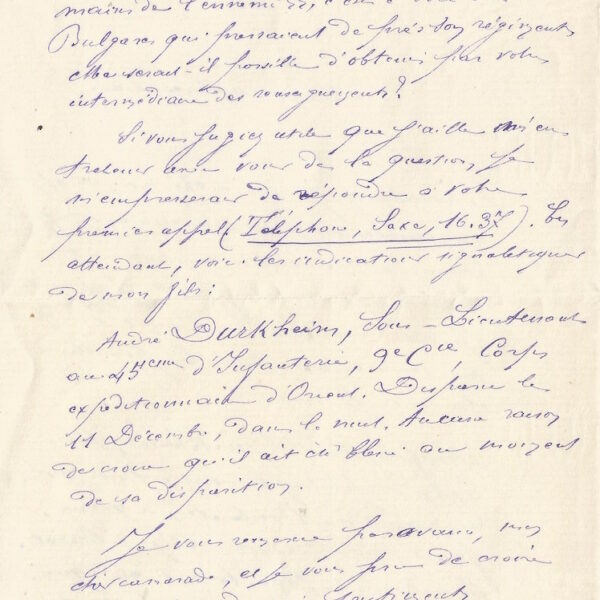 mains de l'ennemi
Bulgares qui pressaient de près son régiment.
Me serait-il possible d'obtenir par votre
intermédiaire des renseignements?
Si vous jugiez utile que j'aille m'en
entretenir avec vous de la question, je
m'empresserais de répondre à votre
premier appel (Téléphone, Saxe, 16.37). En
attendant, voici les indications signalétiques
de mon fils:
André Durkheim, Sous-Lieutenant
au 45ème d'Infanterie, 9e Cie, Corps
expéditionnaire d'Orient. Disparu le
11 Décembre, dans la nuit. Aucune raison
de croire qu'il ait été blessé au moment
de sa disposition.
Je vous remercie par avance, mon
cher camarade, et je vous prie de croire
sentiments